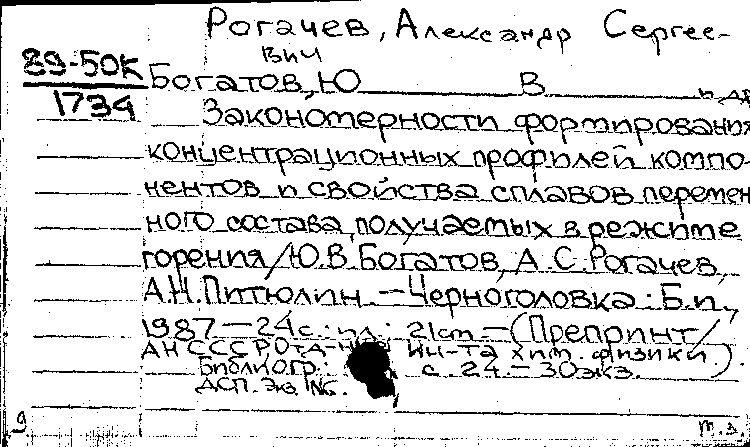 Рогачев, Александр Сергее-
вич
89-50К
1734
Богатов, Ю В и др
Закономерности формирования
концентрационных профилей компо-
нентов и свойства сплавов перемен
ного состава, получаемых в режите
горения/Ю.В.Богатов, А.С.Рогачев,
А.Н.Питюлин.—Черноголовка: Б.и.,
1987—24с.: ил.; 21ст.—(Препринт/
АН СССР, Отд-ние ин-та хим. физики.)
Библиогр.: с. 24.—30экз.
ДСП. Экз. №.
9
т.з.